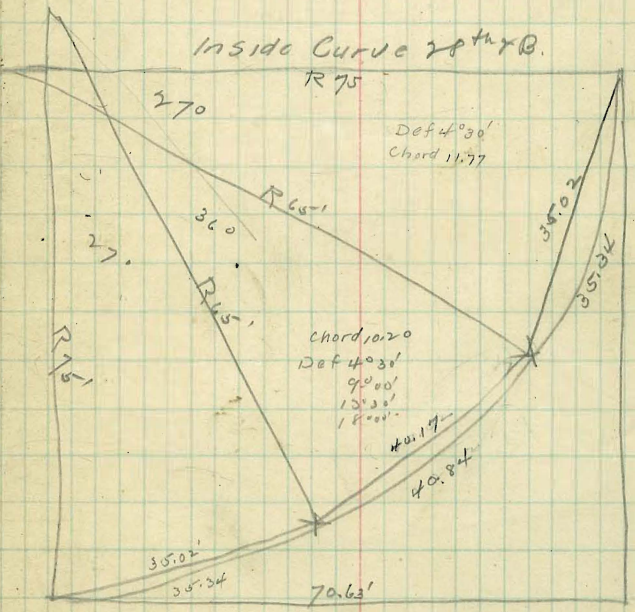 Inside Curve 28th & B.
R 75
270
Def 4°30'
Chord 11.77
R 65'
35.02
36°
27°
35.34
R 65'
R 75'
Chord 10.20
Def 4°30'
9°00'
13°30'
18°00'
40.17
40.84
35.02'
35.34
70.63'